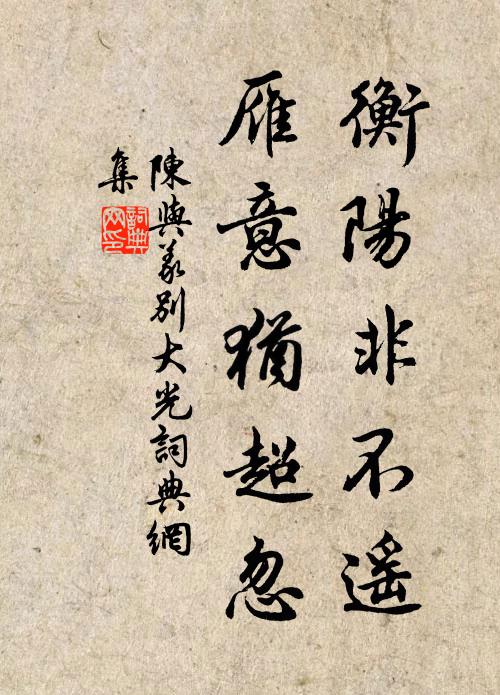 衡陽非不遥
雁意猶超忽
陳與義别大光詞典網
集
詞典網印